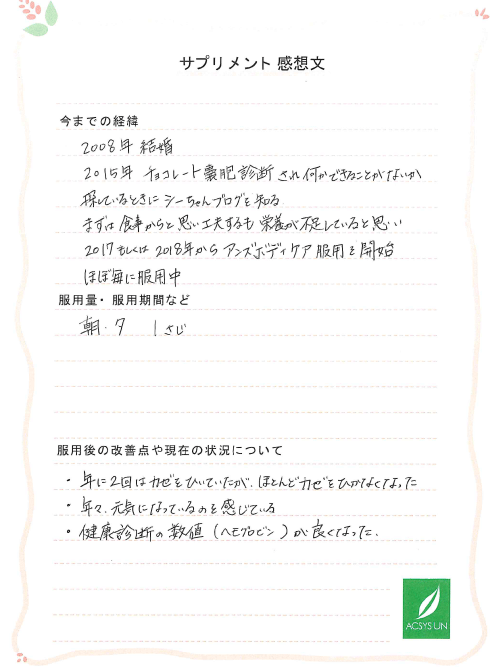 サプリメント 感想文
今までの経緯
2008年 結婚
2015年 チョコレート嚢肥診断され何かできることがないか
探しているときにシーちゃんブログを知る
まずは食事からと思い工夫するも栄養が不足していると思い
2017もしくは2018年からアンズボディケア服用を開始
ほぼ毎に服用中
服用量・服用期間など
朝・夕 1さじ
服用後の改善点や現在の状況について
・年に2回はカゼをひいていたが、ほとんどカゼをひかなくなった
・年々、元気になっているのを感じている
・健康診断の数値(ヘモグロビン)が良くなった.
ACSYS UN